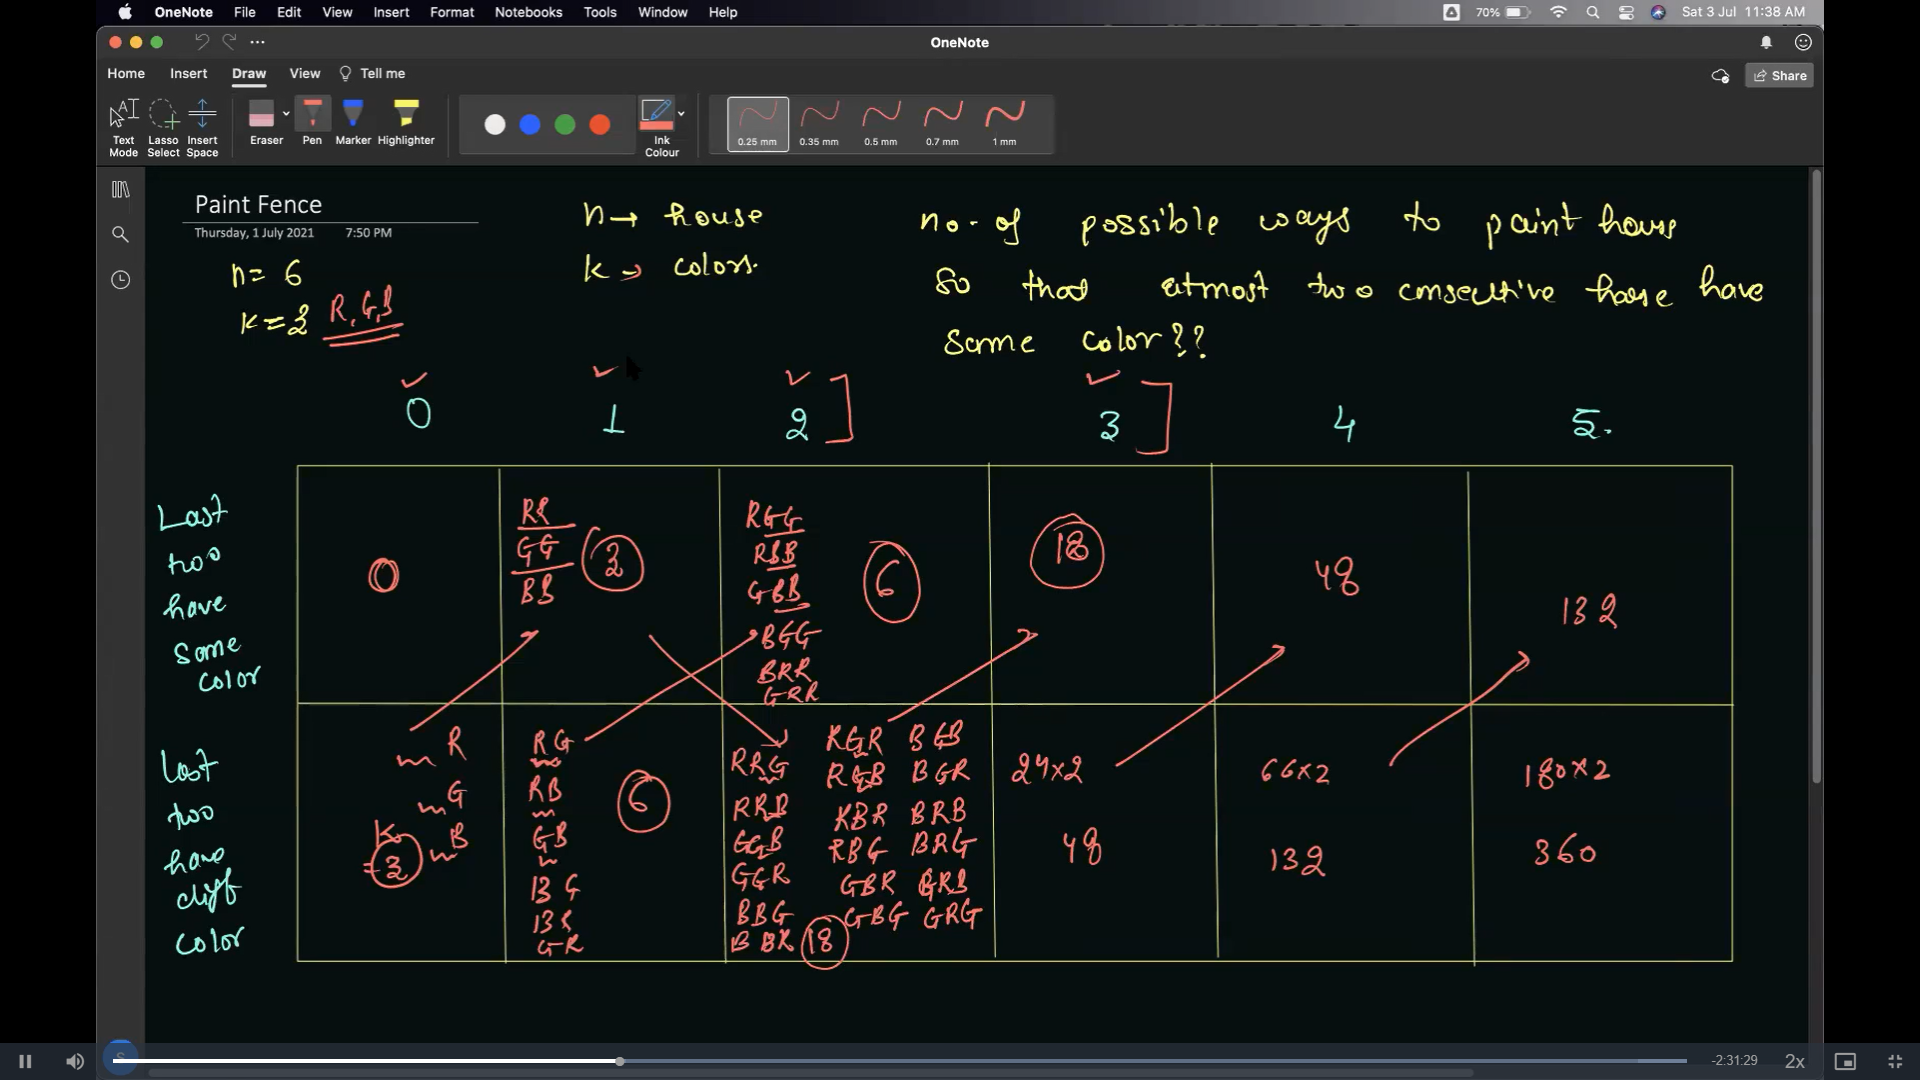 OneNote File Edit View Insert Format Notebooks Tools Window Help 70% Sat 3 Jul 11:38 AM
OneNote
Home Insert Draw View Tell me Share
Text Mode Lasso Select Insert Space Eraser Pen Marker Highlighter Ink Colour 0.25 mm 0.35 mm 0.5 mm 0.7 mm 1 mm
Paint Fence
Thursday, 1 July 2021 7:50 PM
n → house
k → colors.
n = 6
k = 3 R, G, B
no. of possible ways to paint house
So that atmost two consecutive house have
same color??
0 1 2 3 4 5.
Last
two
have
same
color
0
RR
GG
BB
3
RGG
RBB
GBB
BGG
BRR
GRR
6
18
48
132
last
two
have
diff
color
R
G
B
k
= 3
RG
RB
GB
BG
BR
GR
6
RRG
RRB
GGB
GGR
BBG
BBR
RGR BGB
RGB BGR
RBR BRB
RBG BRG
GBR GRB
GBG GRG
18
24x2
48
66x2
132
180x2
360
-2:31:29 2x